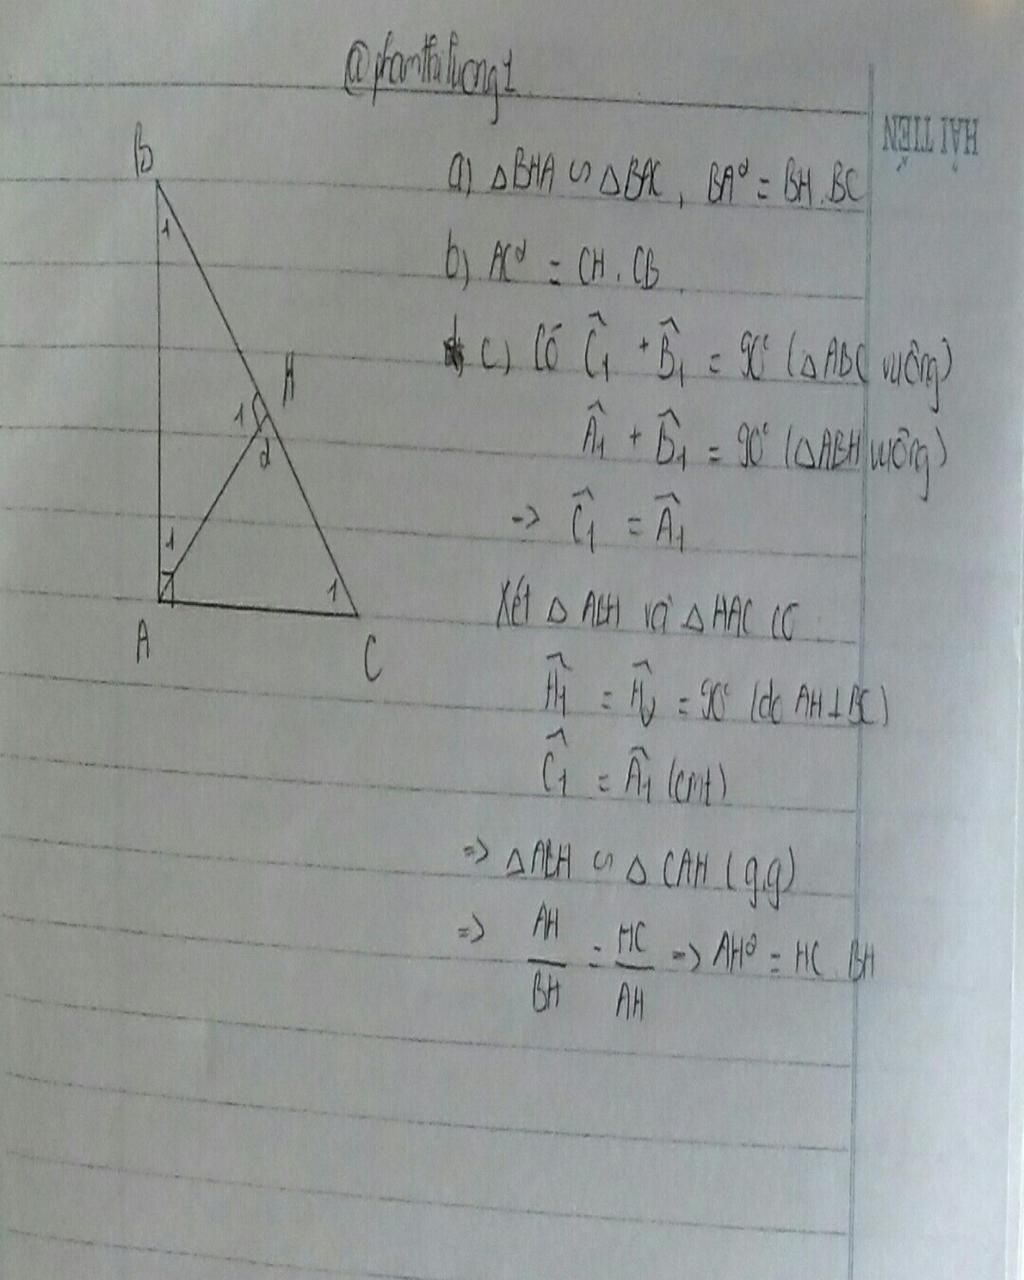 @phamthiluong1
HẢI TIẾN
B
1
H
1
2
1
1
A
C
a) △BHA ∽ △BAC, BA² = BH.BC
b) AC² = CH.CB
c) Có Ĉ₁ + B̂₁ = 90° (△ABC vuông)
Â₁ + B̂₁ = 90° (△ABH vuông)
=> Ĉ₁ = Â₁
Xét △ABH và △HAC có
Ĥ₁ = Ĥ₂ = 90° (do AH⊥BC)
Ĉ₁ = Â₁ (cmt)
=> △ABH ∽ △CAH (g.g)
=> AH/BH = HC/AH => AH² = HC.BH